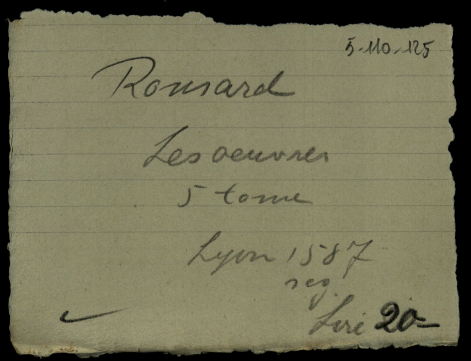 5-110-125
Ronsard
Les oeuvres
5 tome
Lyon 1587
seg.
Lire 20-